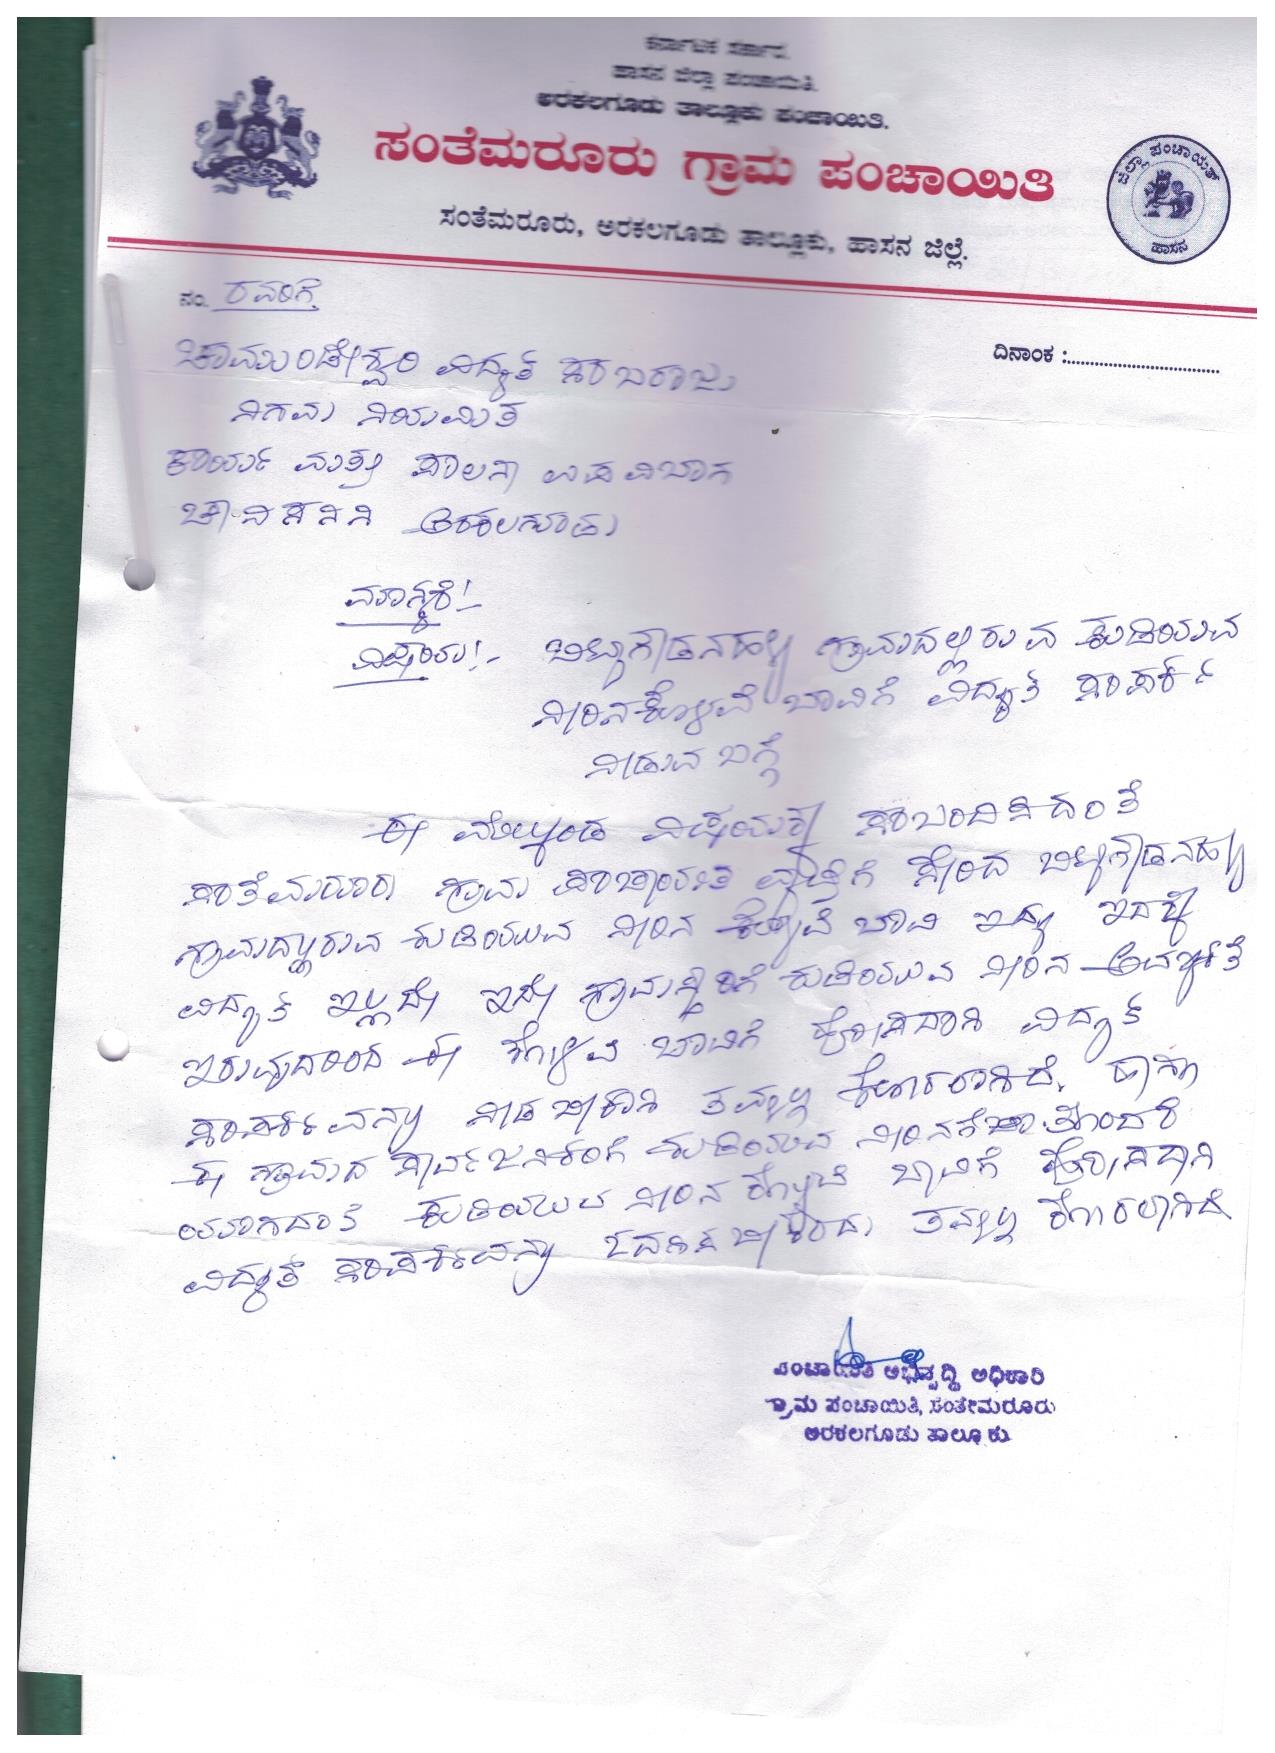 ಕರ್ನಾಟಕ ಸರ್ಕಾರ.
ಹಾಸನ ಜಿಲ್ಲಾ ಪಂಚಾಯಿತಿ.
ಅರಕಲಗೂಡು ತಾಲ್ಲೂಕು ಪಂಚಾಯಿತಿ.
ಸಂತೆಮರೂರು ಗ್ರಾಮ ಪಂಚಾಯಿತಿ
ಜಿಲ್ಲಾ ಪಂಚಾಯತ್
ಹಾಸನ
ಸಂತೆಮರೂರು, ಅರಕಲಗೂಡು ತಾಲ್ಲೂಕು, ಹಾಸನ ಜಿಲ್ಲೆ.
ನಂ. ರವರಿಗೆ
ದಿನಾಂಕ :
ಚಾಮುಂಡೇಶ್ವರಿ ವಿದ್ಯುತ್ ಸರಬರಾಜು
ನಿಗಮ ನಿಯಮಿತ
ಕಾರ್ಯ ಮತ್ತು ಪಾಲನಾ ಉಪವಿಬಾಗ
ಚಾವಿಸನಿನಿ ಅರಕಲಗೂಡು
ಮಾನ್ಯರೆ!
ವಿಷಯ!- ಗ್ರಾಮದಲ್ಲಿರುವ ಕುಡಿಯುವ
ನೀರಿನ ಕೊಳವೆ ಬಾವಿಗೆ ವಿದ್ಯುತ್ ಸಂಪರ್ಕ
ನೀಡುವ ಬಗ್ಗೆ
ಈ ಮೇಲ್ಕಂಡ ವಿಷಯಕ್ಕೆ ಸಂಬಂದಿಸಿದಂತೆ
ಸಂತೆಮರೂರು ಗ್ರಾಮ ಪಂಚಾಯಿತಿ ವ್ಯಾಪ್ತಿಗೆ ಸೇರಿದ
ಗ್ರಾಮದಲ್ಲಿರುವ ಕುಡಿಯುವ ನೀರಿನ ಕೊಳವೆ ಬಾವಿ ಇದ್ದು ಇದಕ್ಕೆ
ವಿದ್ಯುತ್ ಇಲ್ಲದೇ ಇದ್ದು ಗ್ರಾಮಸ್ಥರಿಗೆ ಕುಡಿಯುವ ನೀರಿನ ಅವಶ್ಯಕತೆ
ಇರುವುದರಿಂದ ಈ ಕೊಳವೆ ಬಾವಿಗೆ ವಿದ್ಯುತ್
ಸಂಪರ್ಕವನ್ನು ನೀಡಬೇಕಾಗಿ ತಮ್ಮಲ್ಲಿ ಕೋರಲಾಗಿದೆ. ಹಾಗೂ
ಈ ಗ್ರಾಮದ ಸಾರ್ವಜನಿಕರಿಗೆ ಕುಡಿಯುವ ನೀರಿನಗೆ ತೊಂದರೆ
ಯಾಗದಂತೆ ಕುಡಿಯುವ ನೀರಿನ ಕೊಳವೆ ಬಾವಿಗೆ
ವಿದ್ಯುತ್ ಸಂಪರ್ಕವನ್ನು ಒದಗಿಸಬೇಕೆಂದು ತಮ್ಮಲ್ಲಿ ಕೋರಲಾಗಿದೆ.
ಪಂಚಾಯಿತಿ ಅಭಿವೃದ್ಧಿ ಅಧಿಕಾರಿ
ಗ್ರಾಮ ಪಂಚಾಯಿತಿ, ಸಂತೇಮರೂರು
ಅರಕಲಗೂಡು ತಾಲ್ಲೂಕು.